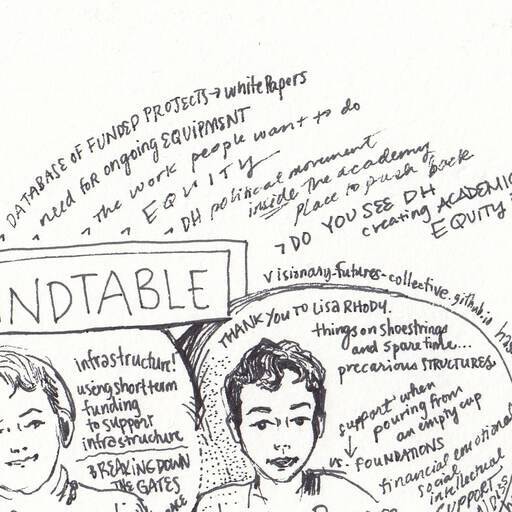 DATABASE OF FUNDED PROJECTS → white Papers
need for ongoing EQUIPMENT
→ the work people want to do
→ EQUITY
→ DH political movement
inside the academy
Place to push back
→ DO YOU SEE DH
creating ACADEMIC
EQUITY
visionary-futures-collective.github.io
NDTABLE
infrastructure!
using short term
funding
to support
infrastructure
BREAKING DOWN
THE GATES
THANK YOU TO LISA RHODY.
things on shoestrings
and spare time...
precarious STRUCTURES.
support when
pouring from
an empty cup
vs. FOUNDATIONS
financial emotional
social
intellectual
SUPPORT